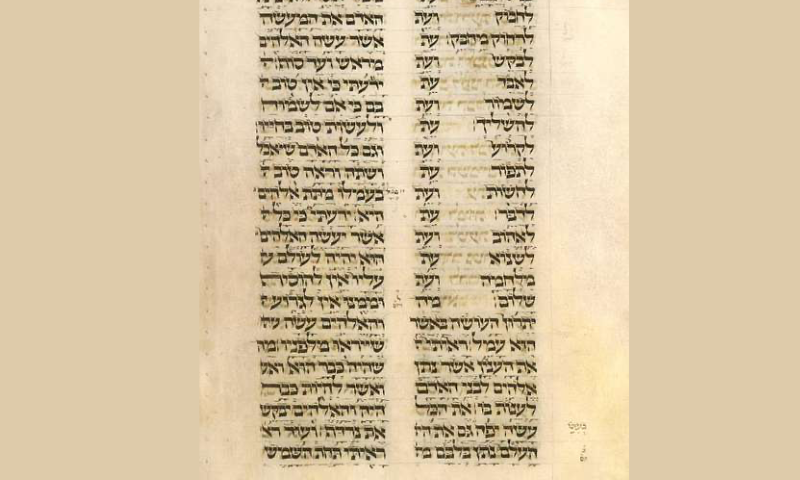 לחבוק ועת
לרחוק מחבק׃ עת
לבקש ועת
לאבד עת
לשמור ועת
להשליך׃ עת
לקרוע ועת
לתפור עת
לחשות ועת
לדבר׃ עת
לאהוב ועת
לשנוא עת
מלחמה ועת
שלום׃ מה
יתרון העושה באשר
הוא עמל׃ ראיתי
את הענין אשר נתן
אלהים לבני האדם
לענות בו׃ את הכל
עשה יפה גם את
העלם נתן בלבם
האדם את המעשה
אשר עשה האלהים
מראש ועד סוף׃
ידעתי כי אין טוב
בם כי אם לשמוח
ולעשות טוב בחייו
וגם כל האדם שיאכל
ושתה וראה טוב
בעמלו מתת אלהים
היא׃ ידעתי כי כל
אשר יעשה האלהים
הוא יהיה לעולם
עליו אין להוסיף
וממנו אין לגרוע
והאלהים עשה
שייראו מלפניו׃ מה
שהיה כבר הוא
ואשר להיות כבר
היה והאלהים יבקש
את נרדף׃ ועוד
ראיתי תחת השמש